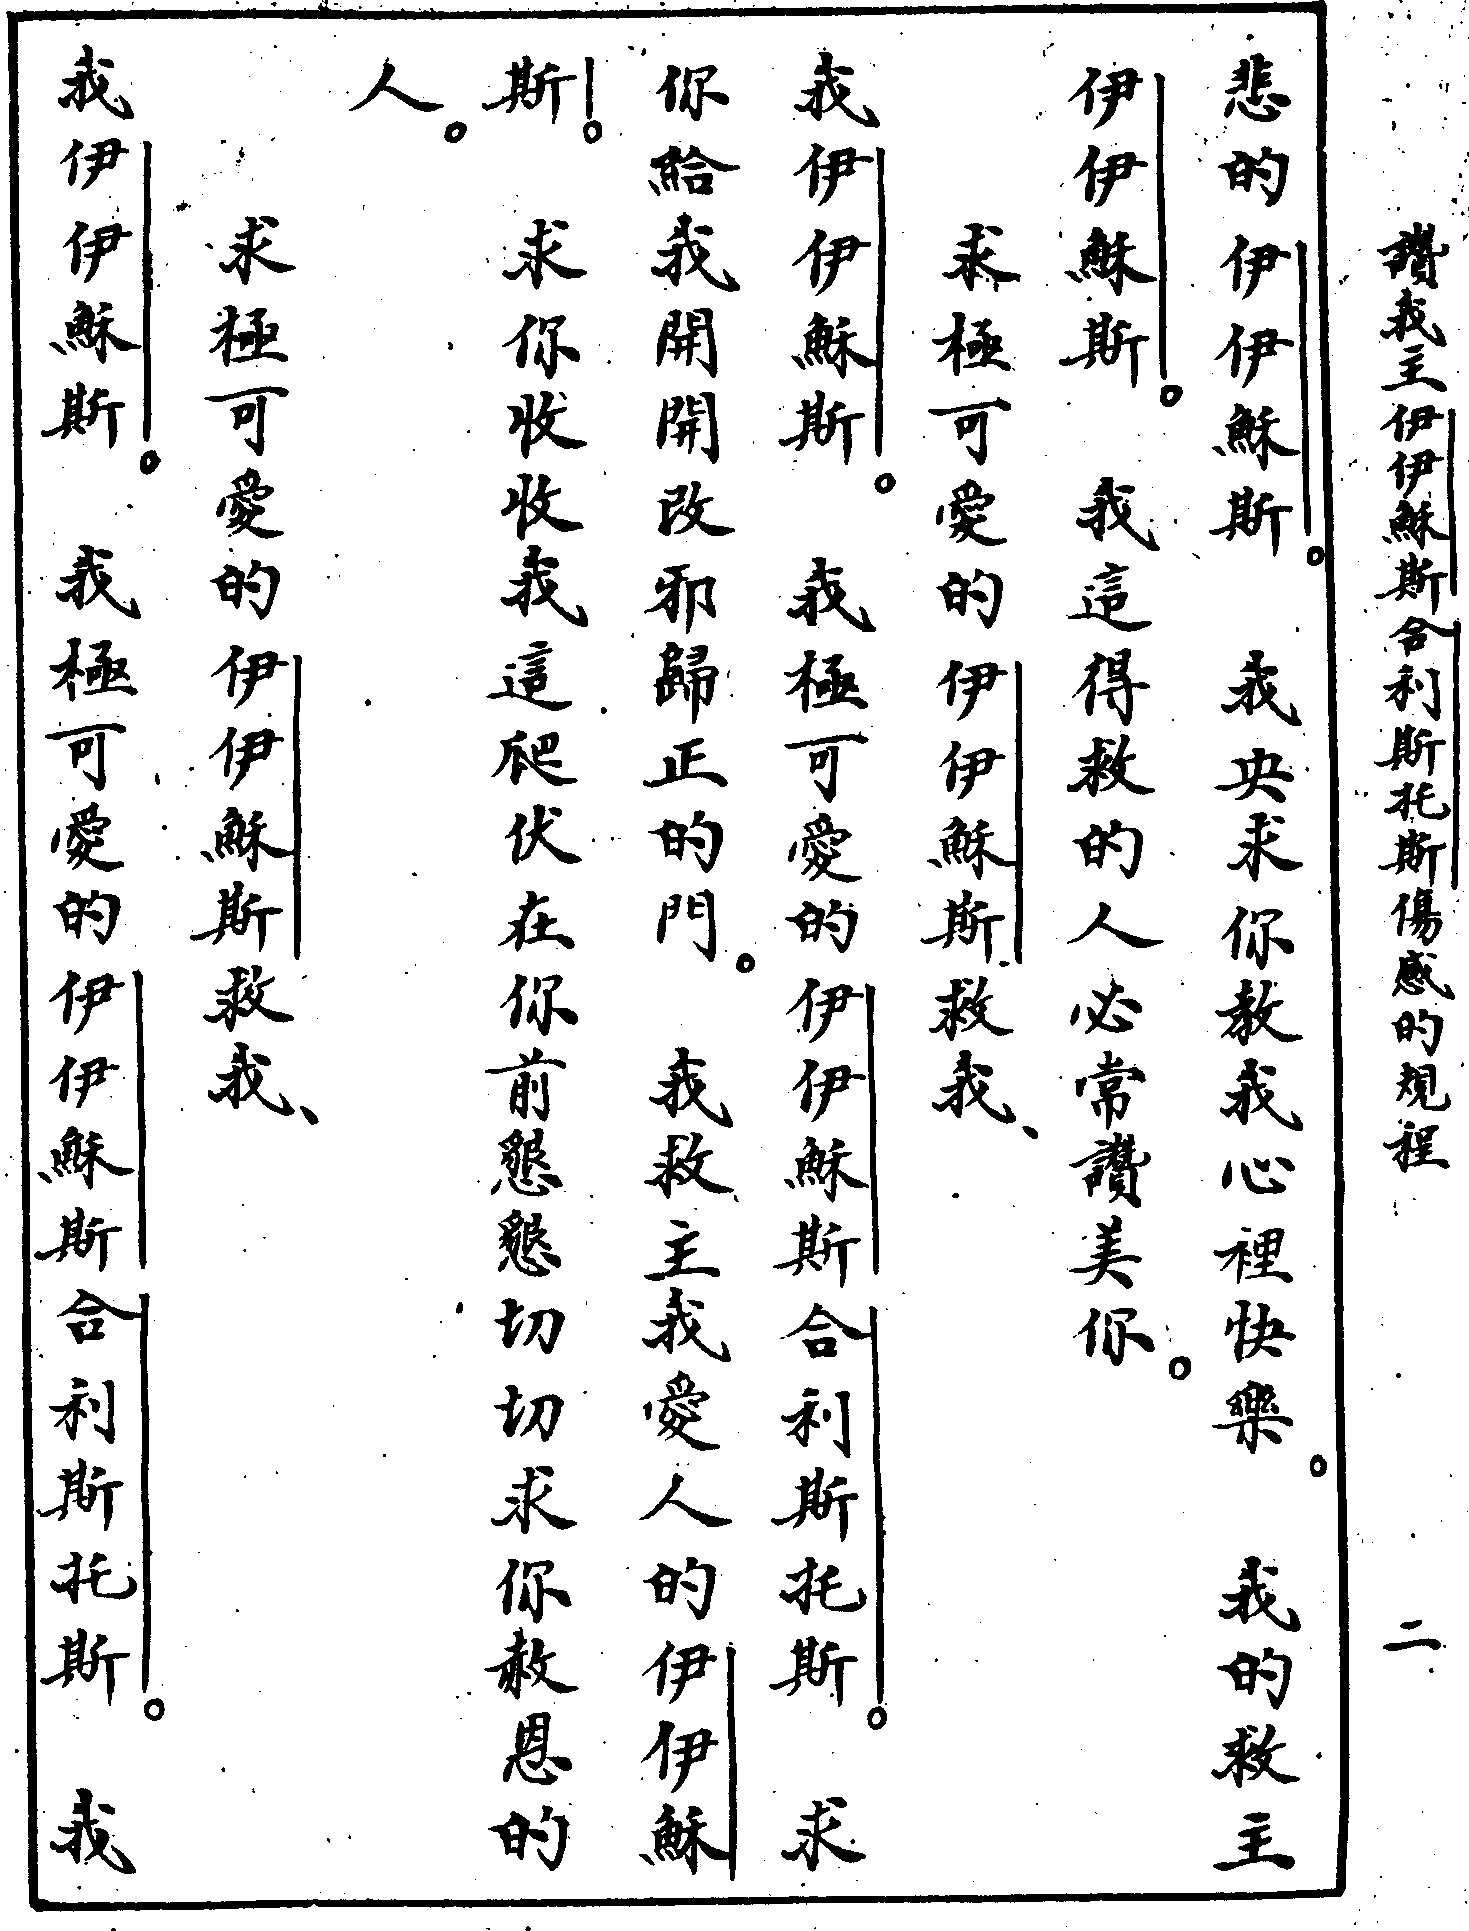 讚我主伊伊穌斯合利斯托斯傷感的規程 二
悲的伊伊穌斯。 我央求你教我心裡快樂。 我的救主
伊伊穌斯。 我這得救的人必常讚美你。
求極可愛的伊伊穌斯救我、
我伊伊穌斯。 我極可愛的伊伊穌斯合利斯托斯。 求
你給我開開改邪歸正的門。 我救主我愛人的伊伊穌
斯。 求你收收我這爬伏在你前懇懇切切求你赦恩的
人。
求極可愛的伊伊穌斯救我、
我伊伊穌斯。 我極可愛的伊伊穌斯合利斯托斯。 我